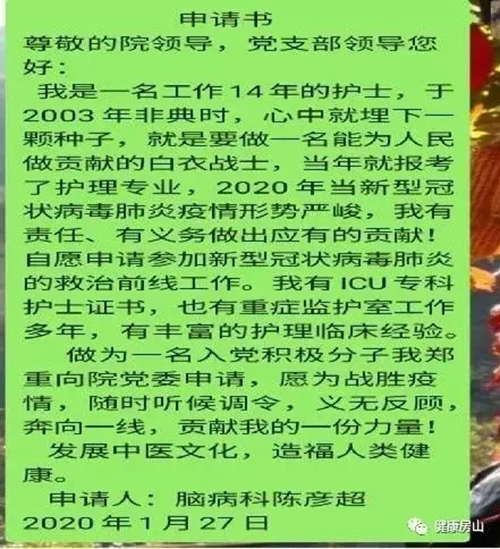 申请书
尊敬的院领导，党支部领导您
好：
我是一名工作14年的护士，于
2003年非典时，心中就埋下一
颗种子，就是要做一名能为人民
做贡献的白衣战士，当年就报考
了护理专业，2020年当新型冠
状病毒肺炎疫情形势严峻，我有
责任、有义务做出应有的贡献！
自愿申请参加新型冠状病毒肺炎
的救治前线工作。我有ICU专科
护士证书，也有重症监护室工作
多年，有丰富的护理临床经验。
做为一名入党积极分子我郑
重向院党委申请，愿为战胜疫
情，随时听候调令，义无反顾，
奔向一线，贡献我的一份力量！
发展中医文化，造福人类健
康。
申请人：脑病科陈彦超
2020年1月27日
健康房山